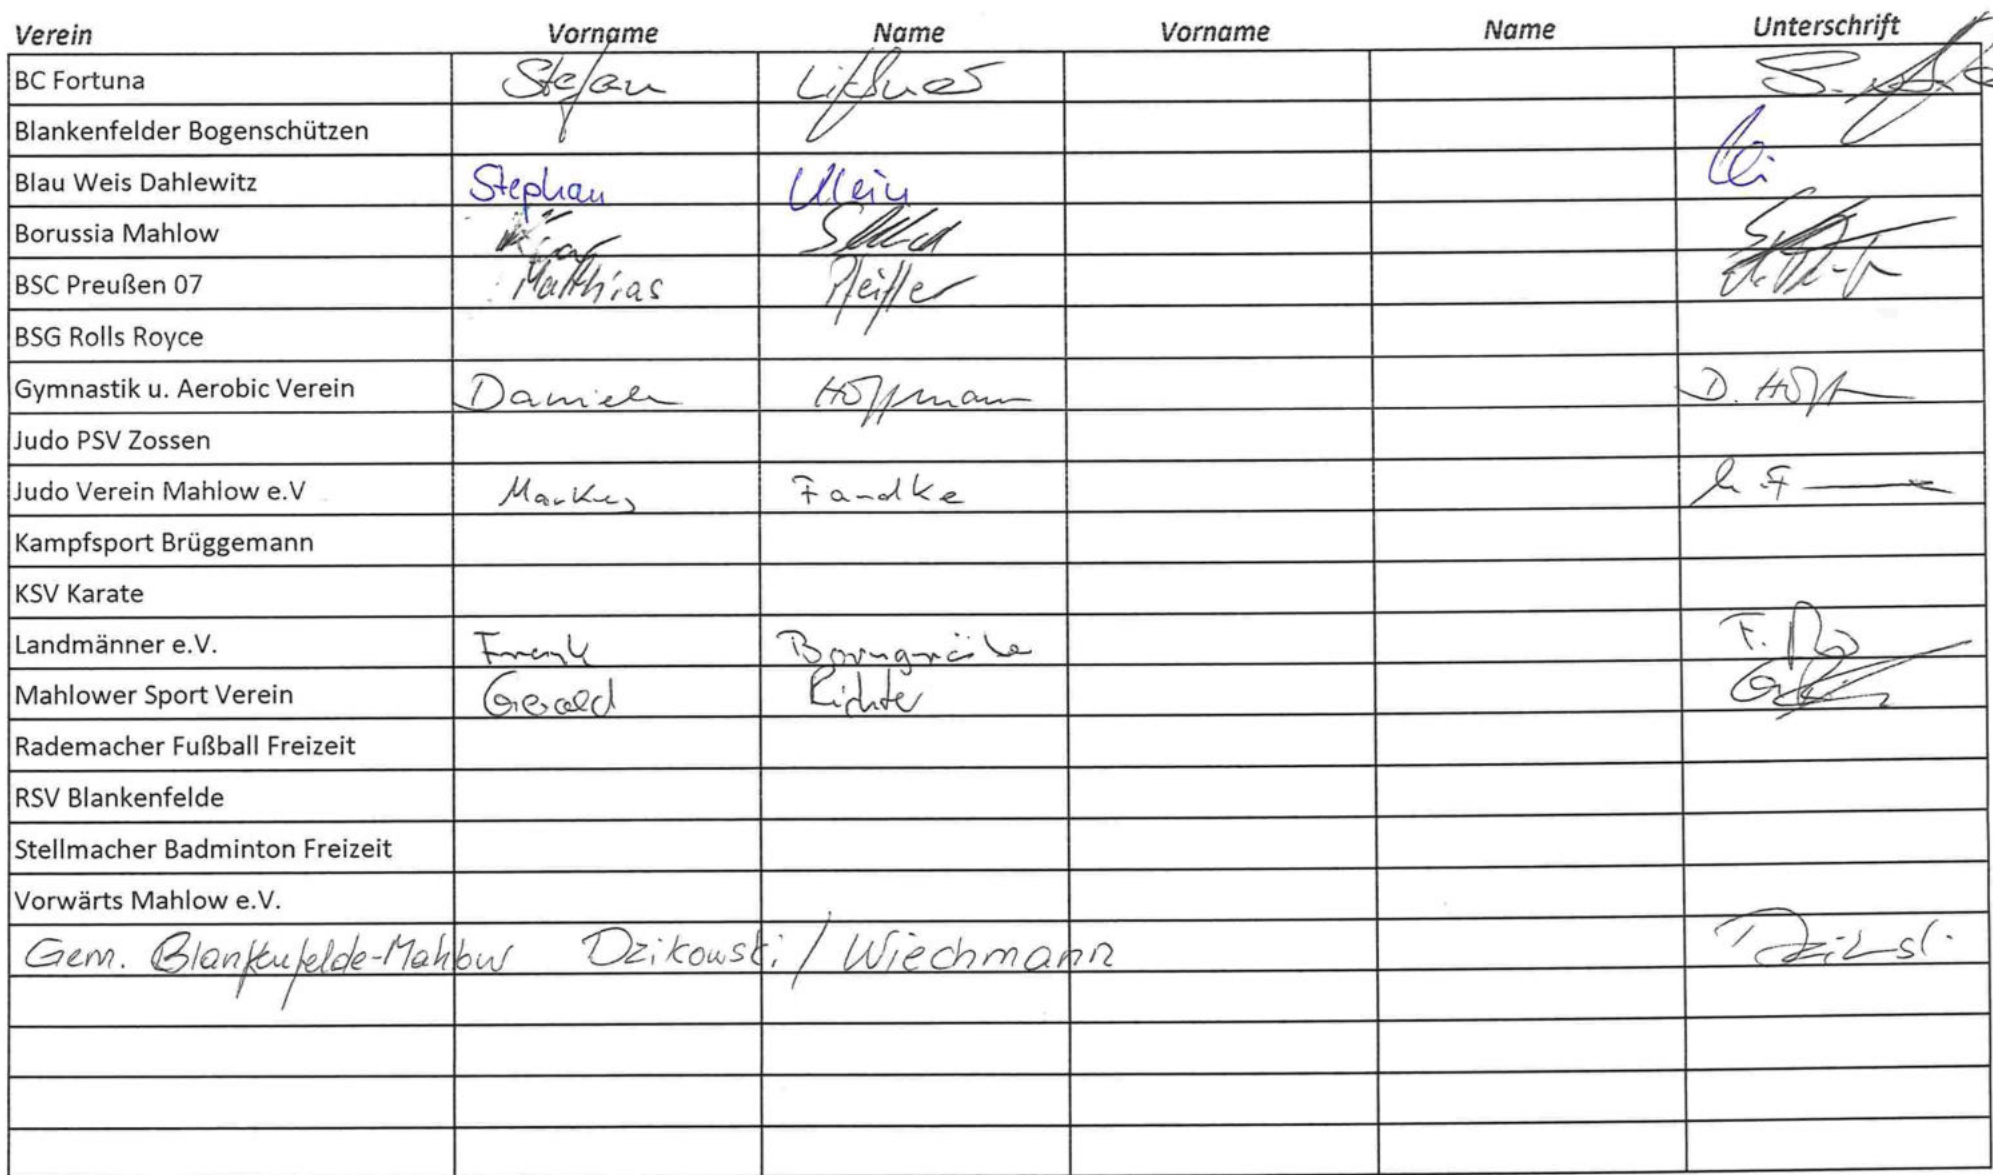 Verein Vorname Name Vorname Name Unterschrift
BC Fortuna Stefan
Blankenfelder Bogenschützen
Blau Weis Dahlewitz Stephan Klein
Borussia Mahlow
BSC Preußen 07 Matthias Pfeiffer
BSG Rolls Royce
Gymnastik u. Aerobic Verein Daniela Hoffmann D. Hoff
Judo PSV Zossen
Judo Verein Mahlow e.V Markus Fandke
Kampfsport Brüggemann
KSV Karate
Landmänner e.V. Frank Borngräber
Mahlower Sport Verein Gerald Richter
Rademacher Fußball Freizeit
RSV Blankenfelde
Stellmacher Badminton Freizeit
Vorwärts Mahlow e.V.
Gem. Blankenfelde-Mahlow Dzikowski / Wiechmann